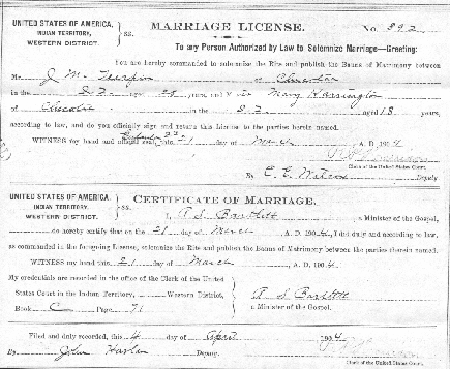 UNITED STATES OF AMERICA,
INDIAN TERRITORY,
WESTERN DISTRICT.
SS.
MARRIAGE LICENSE. No. 892
To any Person Authorized by Law to Solemnize Marriage—Greeting:
You are hereby commanded to solemnize the Rite and publish the Banns of Matrimony between
Mr. J. M. of
in the I. T. aged years, and Mary Harrington
of Checotah in the I. T. aged 18 years,
according to law, and do you officially sign and return this License to the parties herein named.
WITNESS my hand and official seal, this 21 day of March A. D. 1904
Clerk of the United States Court.
By E. E. Deputy
UNITED STATES OF AMERICA,
INDIAN TERRITORY,
WESTERN DISTRICT.
SS.
CERTIFICATE OF MARRIAGE.
I, A. S. Bartlett, a Minister of the Gospel,
do hereby certify that on the 21 day of March A. D. 1904, I did duly and according to law,
as commanded in the foregoing License, solemnize the Rite and publish the Banns of Matrimony between the parties therein named.
WITNESS my hand this 21 day of March, A. D. 1904.
My credentials are recorded in the office of the Clerk of the United
States Court in the Indian Territory, Western District,
Book C Page 71
A. S. Bartlett
a Minister of the Gospel.
Filed and duly recorded, this 4 day of April 1904
By John Harlan Deputy.
Clerk of the United States Court.